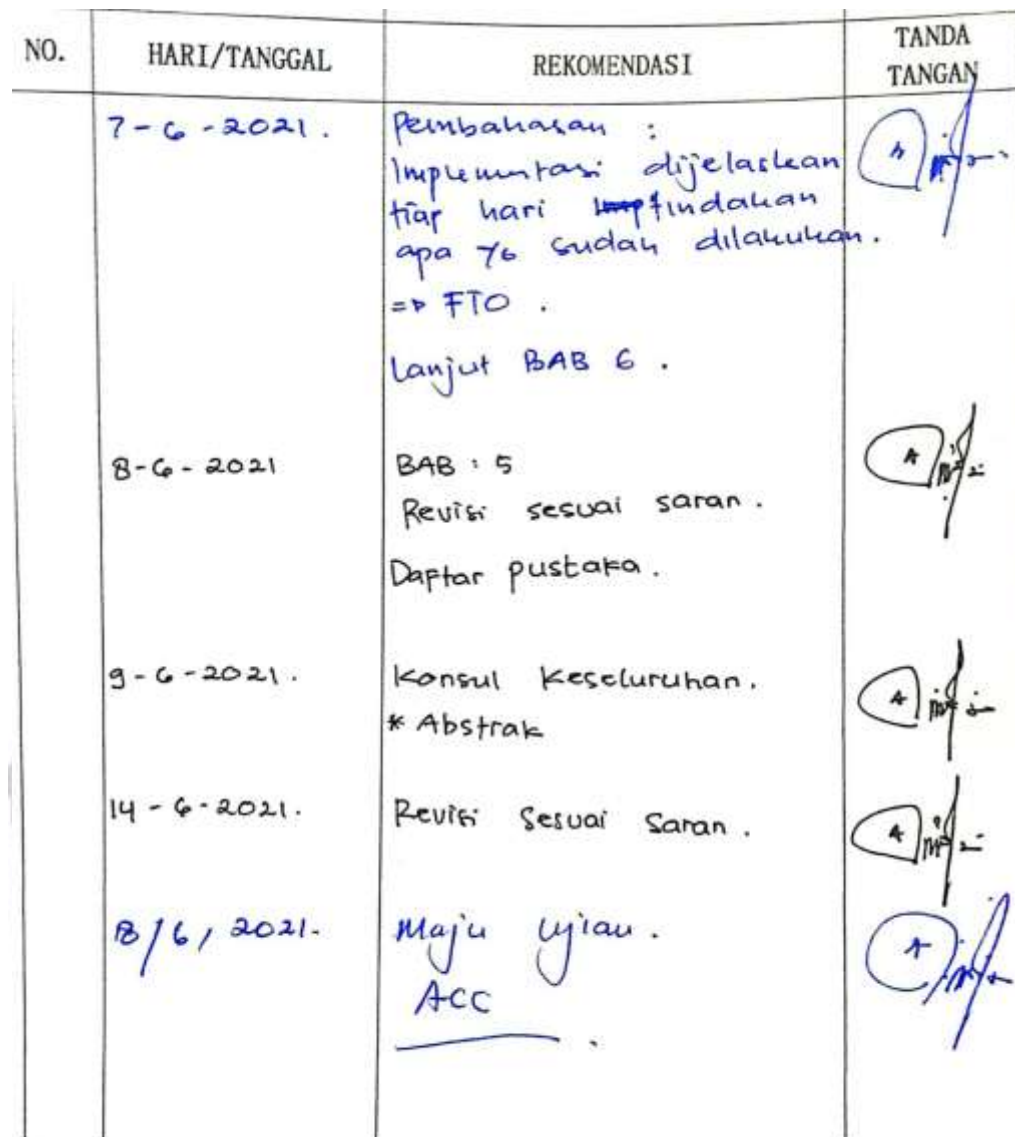 NO. HARI/TANGGAL REKOMENDASI TANDA TANGAN
7-6-2021. Pembahasan :
Implementasi dijelaskan
tiap hari tindakan
apa yg sudah dilakukan.
=> FTO .
Lanjut BAB 6 .
8-6-2021 BAB : 5
Revisi sesuai saran .
Daftar pustaka .
9-6-2021. Konsul Keseluruhan.
* Abstrak
14-6-2021. Revisi Sesuai Saran .
/6, 2021. Maju Ujian .
ACC